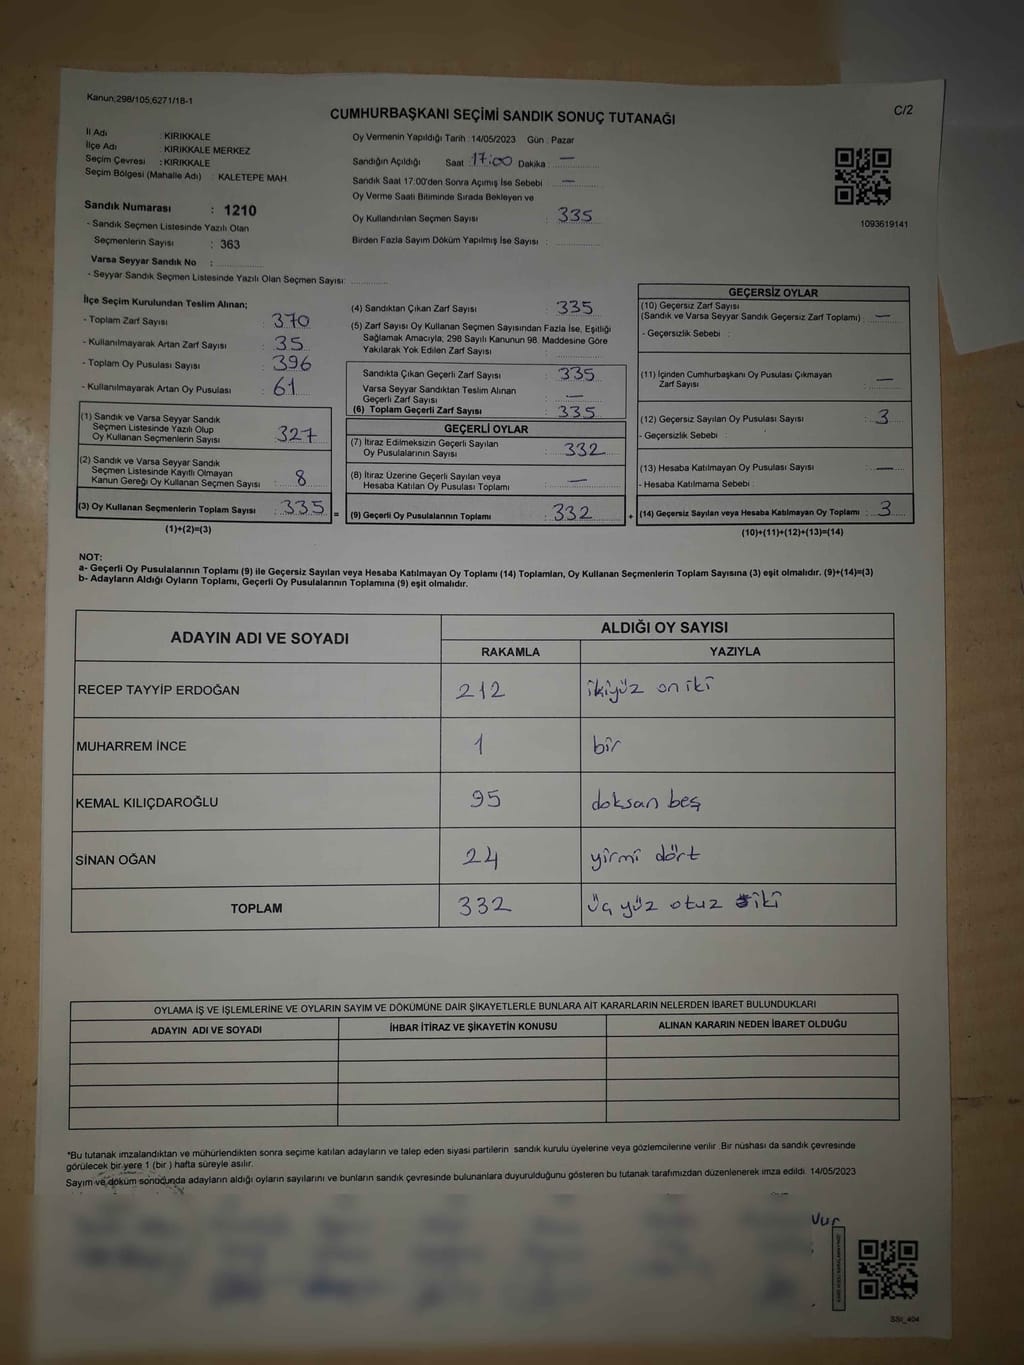 Kanun;298/105,6271/18-1
CUMHURBAŞKANI SEÇİMİ SANDIK SONUÇ TUTANAĞI
C/2
İl Adı : KIRIKKALE
İlçe Adı : KIRIKKALE MERKEZ
Seçim Çevresi : KIRIKKALE
Seçim Bölgesi (Mahalle Adı) : KALETEPE MAH.
Sandık Numarası : 1210
- Sandık Seçmen Listesinde Yazılı Olan
Seçmenlerin Sayısı : 363
Varsa Seyyar Sandık No :
- Seyyar Sandık Seçmen Listesinde Yazılı Olan Seçmen Sayısı:
Oy Vermenin Yapıldığı Tarih : 14/05/2023 Gün : Pazar
Sandığın Açıldığı Saat : 17:00 Dakika : —
Sandık Saat 17:00'den Sonra Açımış İse Sebebi : —
Oy Verme Saati Bitiminde Sırada Bekleyen ve
Oy Kullandırılan Seçmen Sayısı : 335
Birden Fazla Sayım Döküm Yapılmış İse Sayısı :
1093619141
İlçe Seçim Kurulundan Teslim Alınan;
- Toplam Zarf Sayısı : 370
- Kullanılmayarak Artan Zarf Sayısı : 35
- Toplam Oy Pusulası Sayısı : 396
- Kullanılmayarak Artan Oy Pusulası : 61
(1) Sandık ve Varsa Seyyar Sandık
Seçmen Listesinde Yazılı Olup
Oy Kullanan Seçmenlerin Sayısı : 327
(2) Sandık ve Varsa Seyyar Sandık
Seçmen Listesinde Kayıtlı Olmayan
Kanun Gereği Oy Kullanan Seçmen Sayısı : 8
(3) Oy Kullanan Seçmenlerin Toplam Sayısı : 335
(1)+(2)=(3)
(4) Sandıktan Çıkan Zarf Sayısı : 335
(5) Zarf Sayısı Oy Kullanan Seçmen Sayısından Fazla İse, Eşitliği
Sağlamak Amacıyla, 298 Sayılı Kanunun 98. Maddesine Göre
Yakılarak Yok Edilen Zarf Sayısı :
Sandıkta Çıkan Geçerli Zarf Sayısı : 335
Varsa Seyyar Sandıktan Teslim Alınan
Geçerli Zarf Sayısı : —
(6) Toplam Geçerli Zarf Sayısı : 335
GEÇERLİ OYLAR
(7) İtiraz Edilmeksizin Geçerli Sayılan
Oy Pusulalarının Sayısı : 332
(8) İtiraz Üzerine Geçerli Sayılan veya
Hesaba Katılan Oy Pusulası Toplamı : —
= (9) Geçerli Oy Pusulalarının Toplamı : 332
GEÇERSİZ OYLAR
(10) Geçersiz Zarf Sayısı
(Sandık ve Varsa Seyyar Sandık Geçersiz Zarf Toplamı) : —
- Geçersizlik Sebebi :
(11) İçinden Cumhurbaşkanı Oy Pusulası Çıkmayan
Zarf Sayısı : —
(12) Geçersiz Sayılan Oy Pusulası Sayısı : 3
- Geçersizlik Sebebi :
(13) Hesaba Katılmayan Oy Pusulası Sayısı : —
- Hesaba Katılmama Sebebi :
+ (14) Geçersiz Sayılan veya Hesaba Katılmayan Oy Toplamı : 3
(10)+(11)+(12)+(13)=(14)
NOT:
a- Geçerli Oy Pusulalarının Toplamı (9) ile Geçersiz Sayılan veya Hesaba Katılmayan Oy Toplamı (14) Toplamları, Oy Kullanan Seçmenlerin Toplam Sayısına (3) eşit olmalıdır. (9)+(14)=(3)
b- Adayların Aldığı Oyların Toplamı, Geçerli Oy Pusulalarının Toplamına (9) eşit olmalıdır.
ADAYIN ADI VE SOYADI
ALDIĞI OY SAYISI
RAKAMLA YAZIYLA
RECEP TAYYİP ERDOĞAN 212 ikiyüz on iki
MUHARREM İNCE 1 bir
KEMAL KILIÇDAROĞLU 95 doksan beş
SİNAN OĞAN 24 yirmi dört
TOPLAM 332 üç yüz otuz iki
OYLAMA İŞ VE İŞLEMLERİNE VE OYLARIN SAYIM VE DÖKÜMÜNE DAİR ŞİKAYETLERLE BUNLARA AİT KARARLARIN NELERDEN İBARET BULUNDUKLARI
ADAYIN ADI VE SOYADI İHBAR İTİRAZ VE ŞİKAYETİN KONUSU ALINAN KARARIN NEDEN İBARET OLDUĞU
*Bu tutanak imzalandıktan ve mühürlendikten sonra seçime katılan adayların ve talep eden siyasi partilerin sandık kurulu üyelerine veya gözlemcilerine verilir. Bir nüshası da sandık çevresinde
görülecek bir yere 1 (bir) hafta süreyle asılır.
Sayım ve döküm sonucunda adayların aldığı oyların sayılarını ve bunların sandık çevresinde bulunanlara duyurulduğunu gösteren bu tutanak tarafımızdan düzenlenerek imza edildi. 14/05/2023
SSt_404